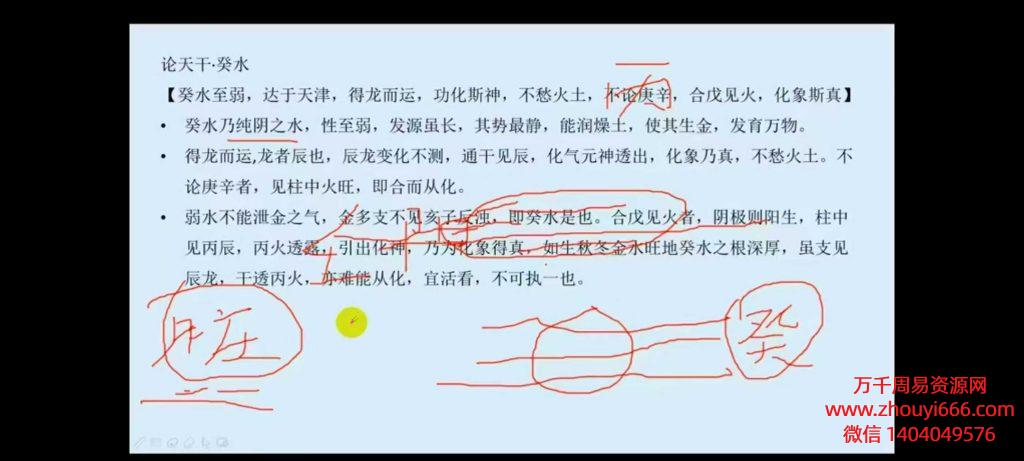 论天干·癸水
【癸水至弱，达于天津，得龙而运，功化斯神，不愁火土，不论庚辛，合戊见火，化象斯真】
• 癸水乃纯阴之水，性至弱，发源虽长，其势最静，能润燥土，使其生金，发育万物。
• 得龙而运,龙者辰也，辰龙变化不测，通干见辰，化气元神透出，化象乃真，不愁火土。不
论庚辛者，见柱中火旺，即合而从化。
• 弱水不能泄金之气，金多支不见亥子反浊，即癸水是也。合戊见火者，阴极则阳生，柱中
见丙辰，丙火透露，引出化神，乃为化象得真，如生秋冬金水旺地癸水之根深厚，虽支见
辰龙，干透丙火，亦难能从化，宜活看，不可执一也。
癸
万千周易资源网
www.zhouyi666.com
微信 1404049576